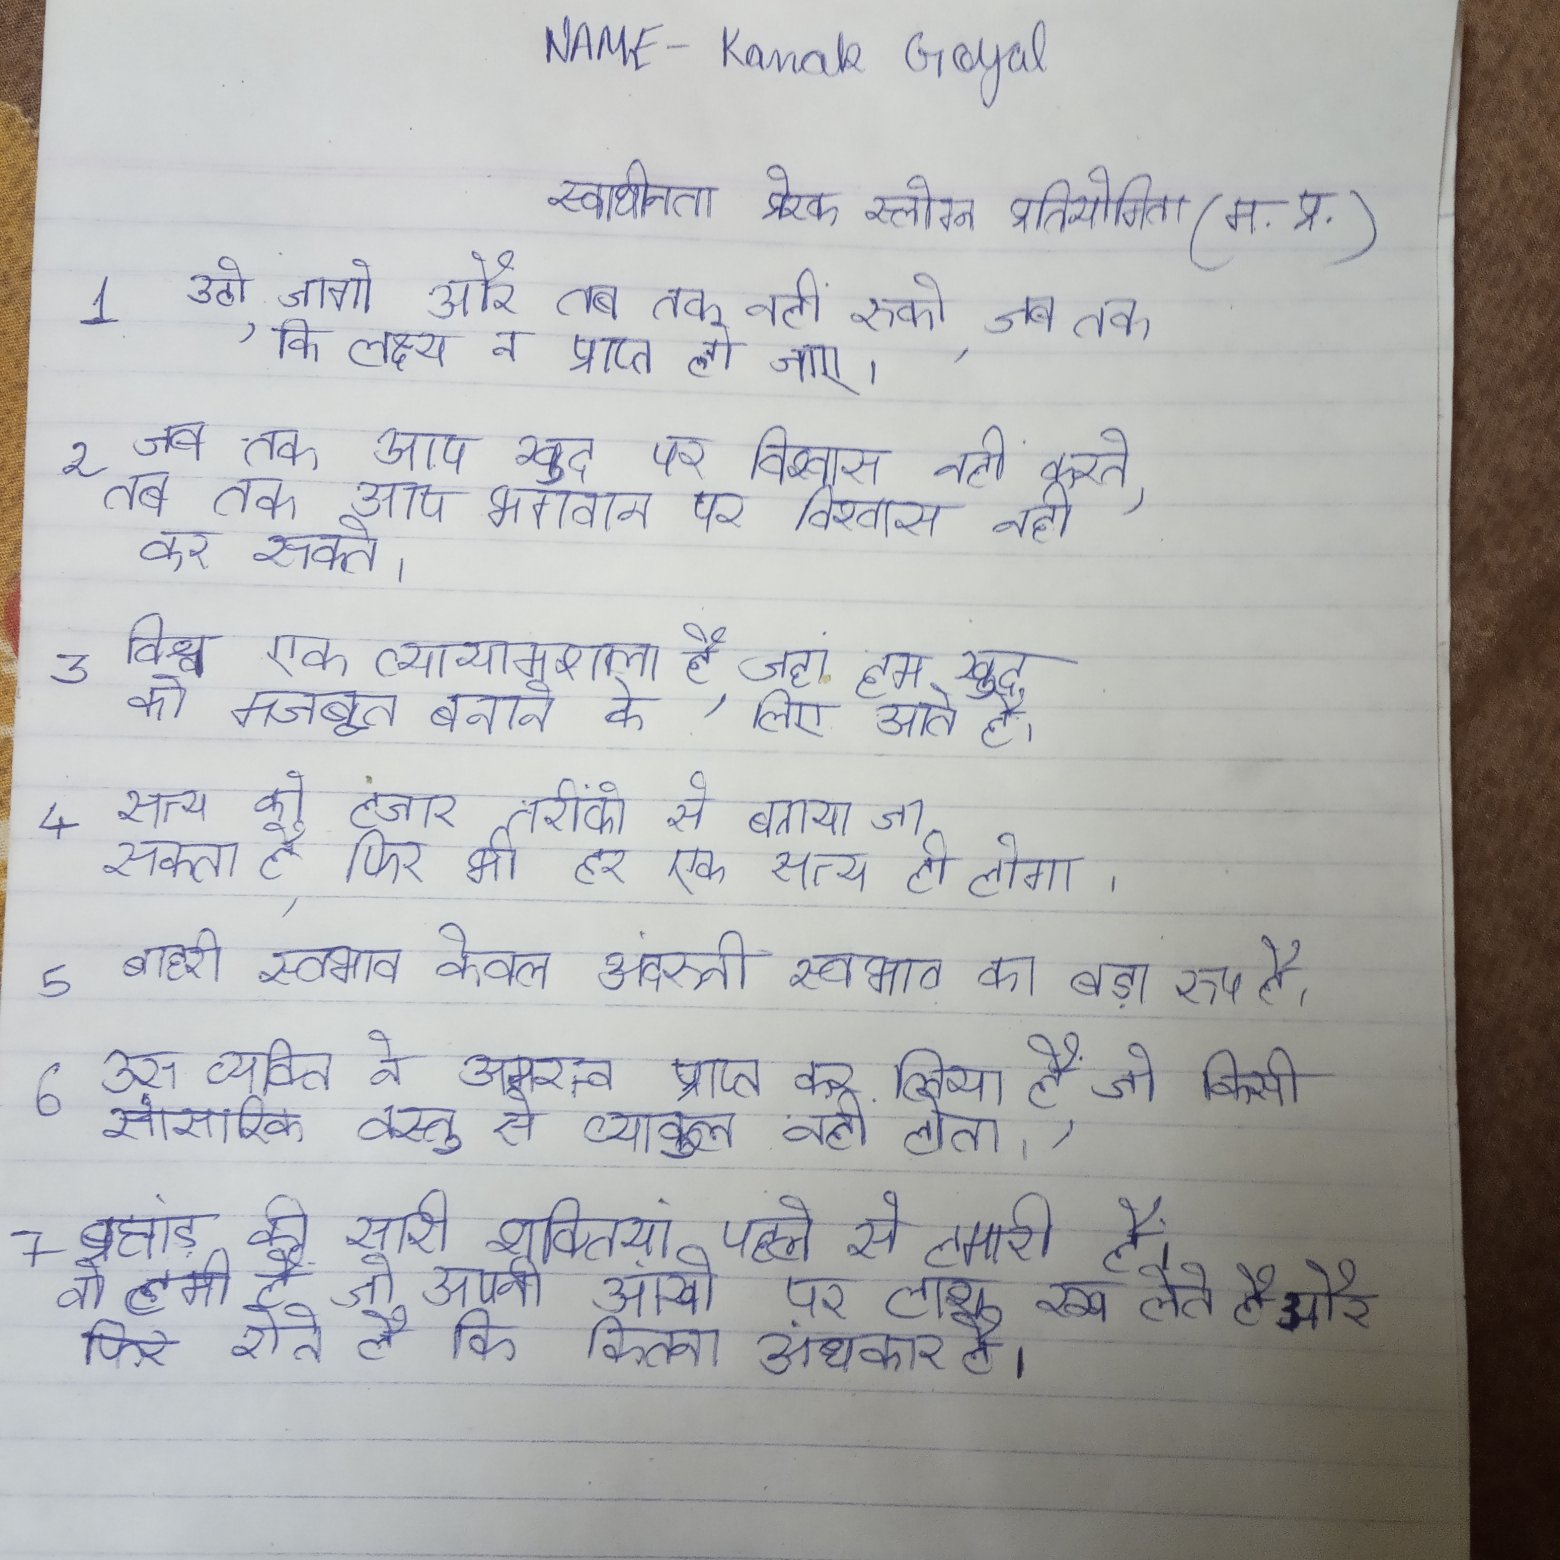 NAME - Kanak Goyal
स्वाधीनता प्रेरक स्लोगन प्रतियोगिता (म. प्र.)
1 उठो, जागो और तब तक नहीं रुको, जब तक
कि लक्ष्य न प्राप्त हो जाए।
2 जब तक आप खुद पर विश्वास नहीं करते,
तब तक आप भगवान पर विश्वास नहीं
कर सकते।
3 विश्व एक व्यायामशाला है, जहां हम खुद
को मजबूत बनाने के लिए आते है।
4 सत्य को हजार तरींको से बताया जा
सकता है, फिर भी हर एक सत्य ही होगा।
5 बाहरी स्वभाव केवल अंदरुनी स्वभाव का बड़ा रुप है।
6 उस व्यक्ति ने अमरत्व प्राप्त कर लिया हैं, जो किसी
सांसारिक वस्तु से व्याकुल नही होता।
7 ब्रह्मांड की सारी शक्तियां पहले से हमारी हैं।
वो हमी हैं जो अपनी आंखो पर हाथ रख लेते है और
फिर रोते है कि कितना अंधकार है।